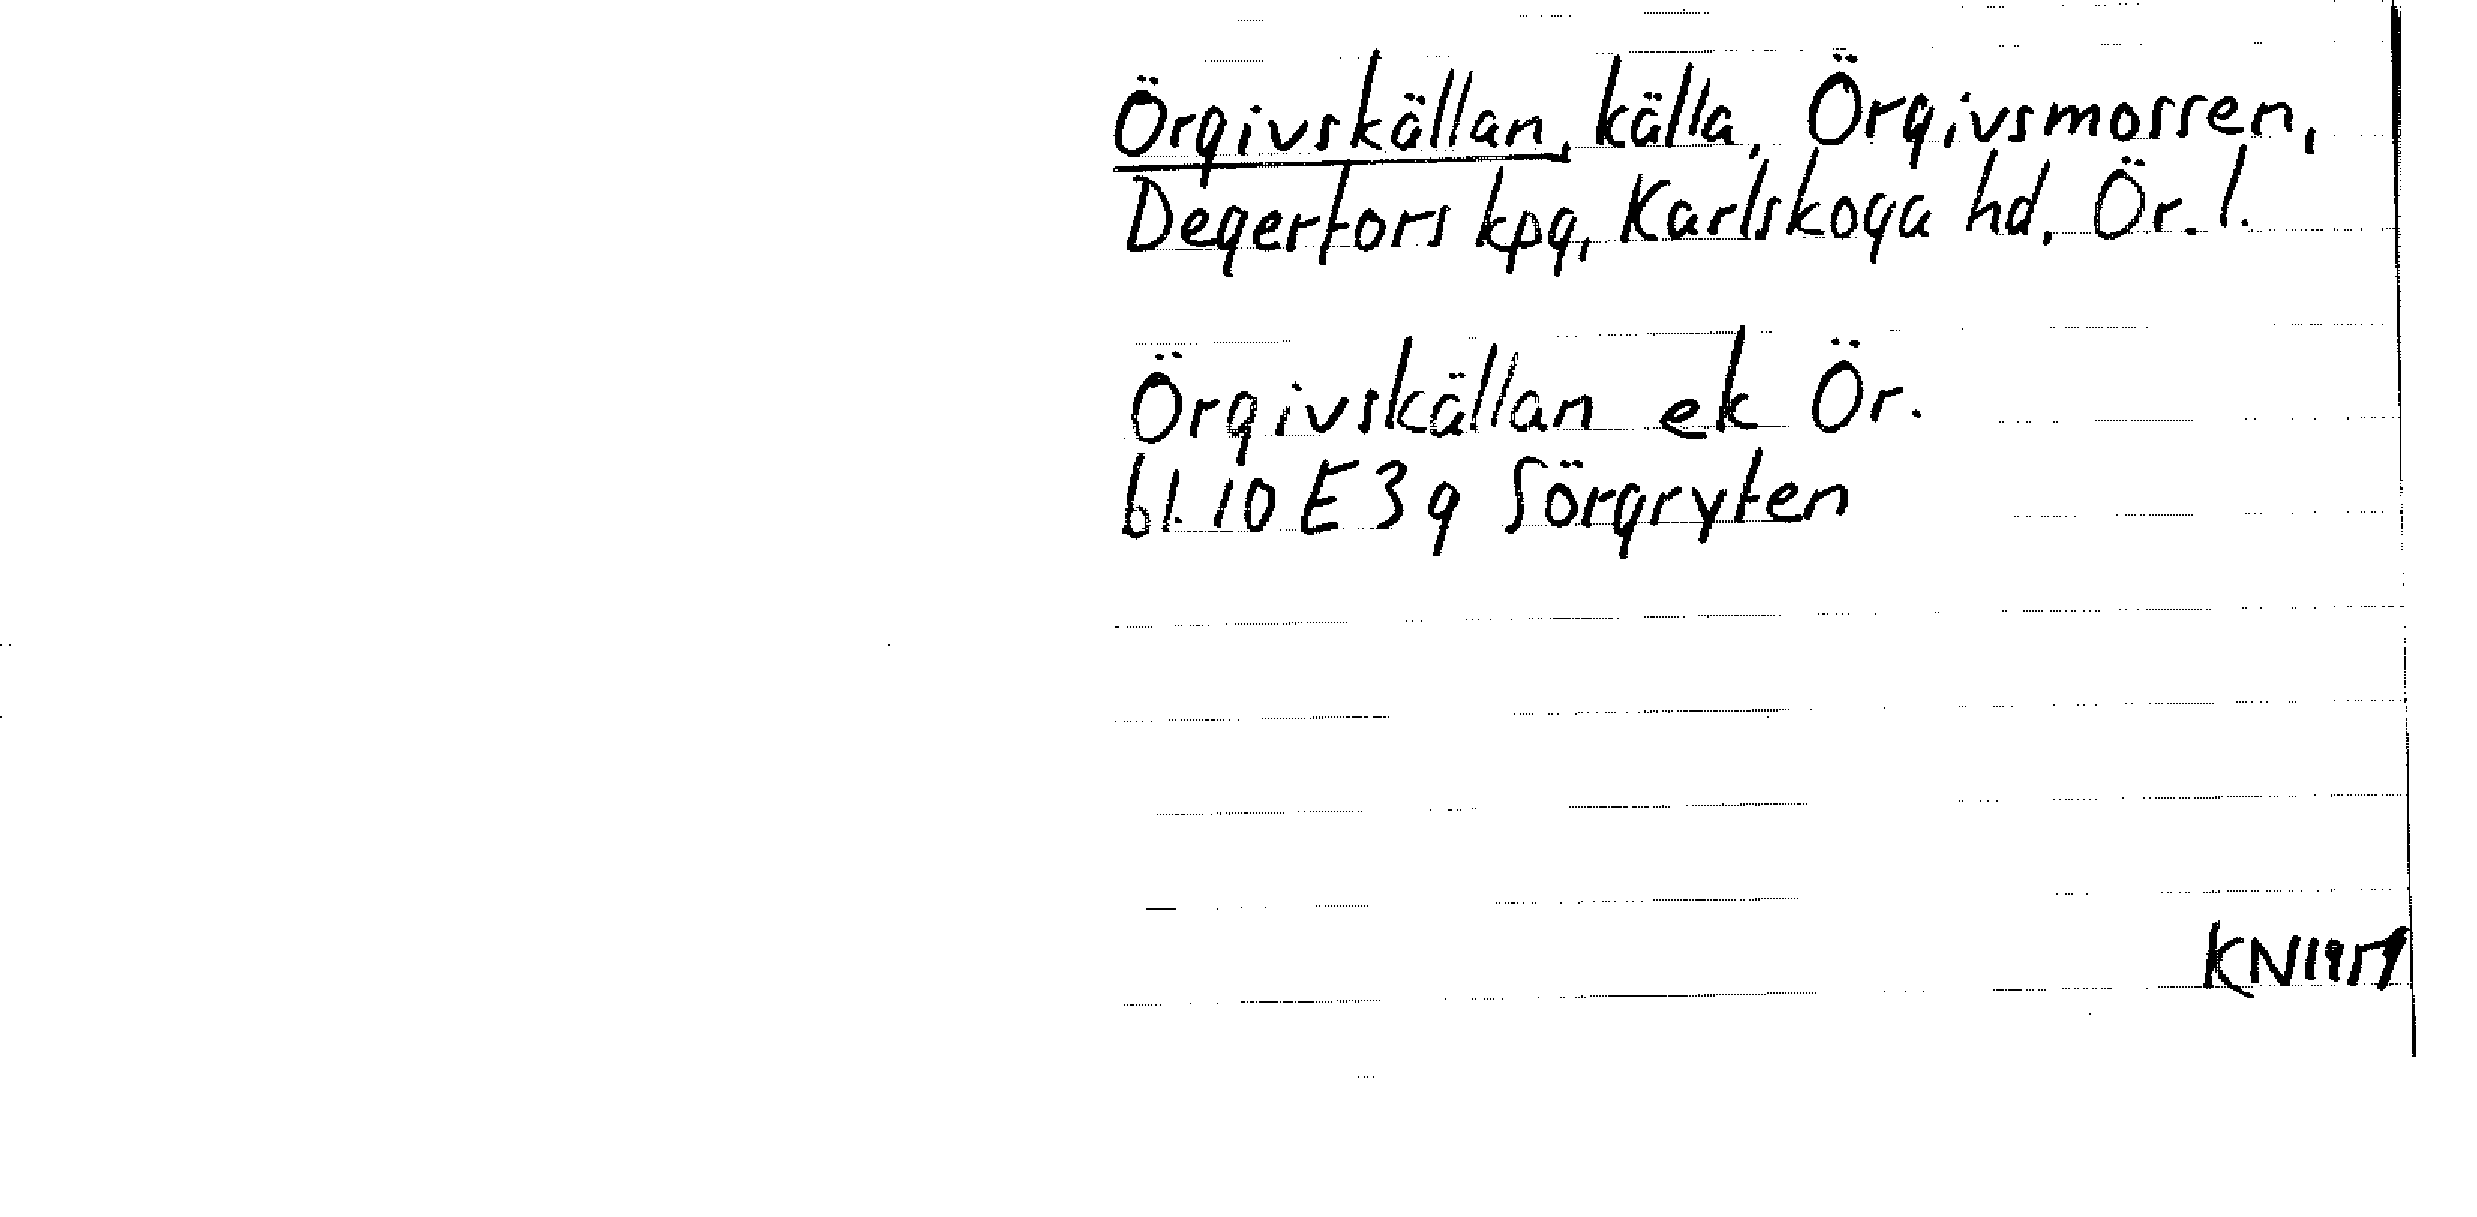 Örgivskällan, källa, Örgivsmossen,
Degerfors kpg, Karlskoga hd, Ör. l.
Örgivskällan ek Ör.
bl. 10 E 3 g Sörgryten